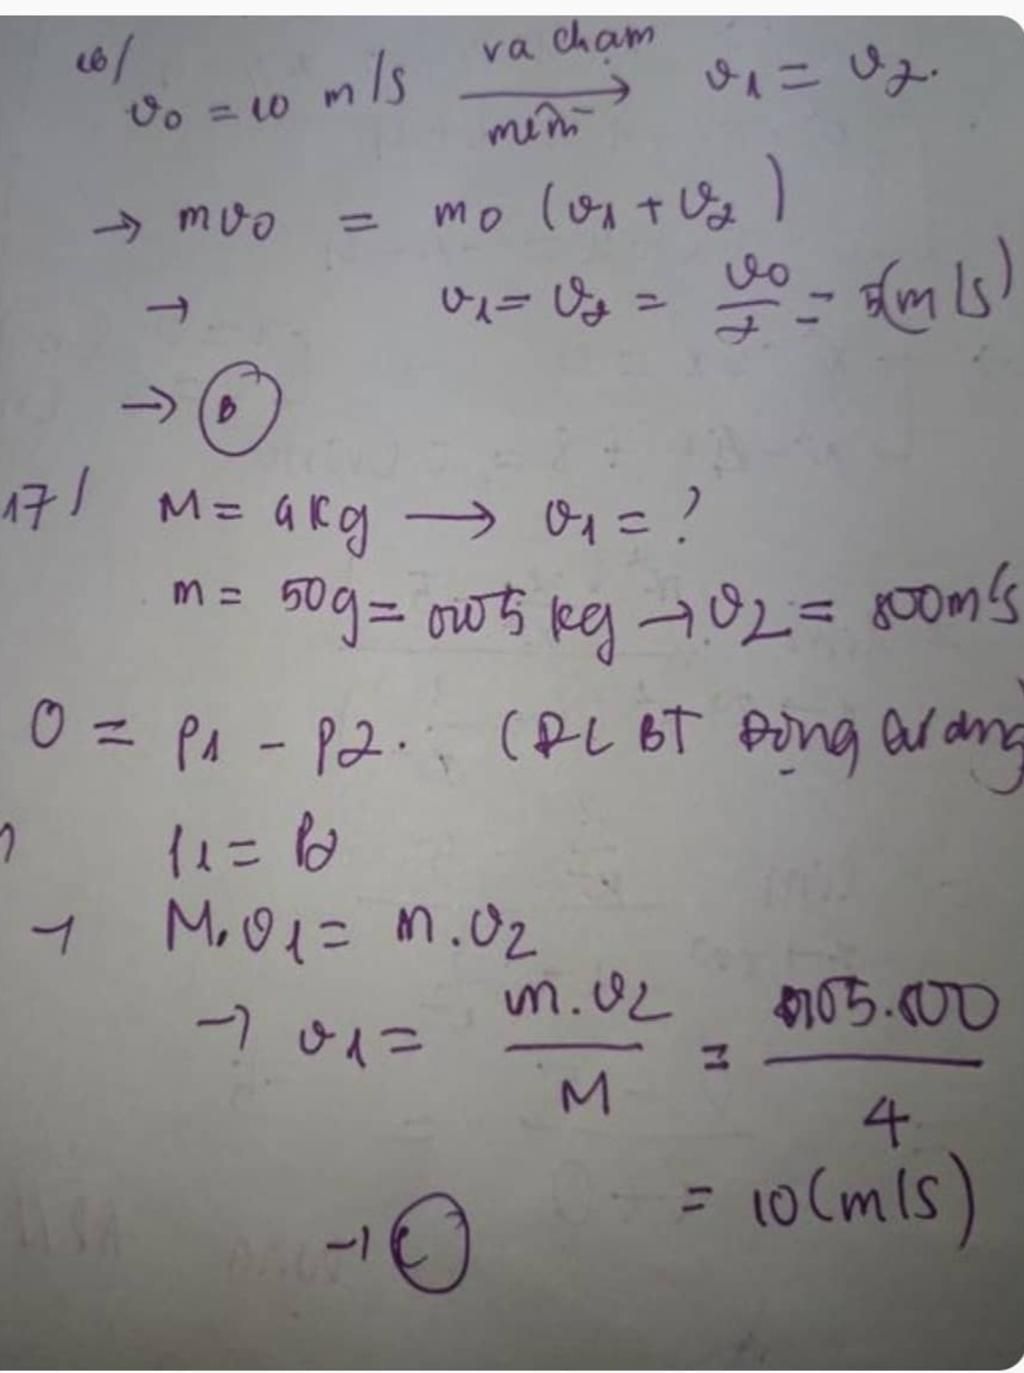 16/
v0 = 10 m/s va chạm mềm → v1 = v2.
→ mv0 = m0 (v1 + v2)
→ v1 = v2 = v0/2 = 5(m/s)
→ B
17/ M = 4kg → v1 = ?
m = 50g = 0,05 kg → v2 = 800m/s
0 = P1 - P2. (ĐL BT Động lượng)
P1 = P2
→ M.v1 = m.v2
→ v1 = m.v2/M = 0,05.800/4
= 10(m/s)
→ C